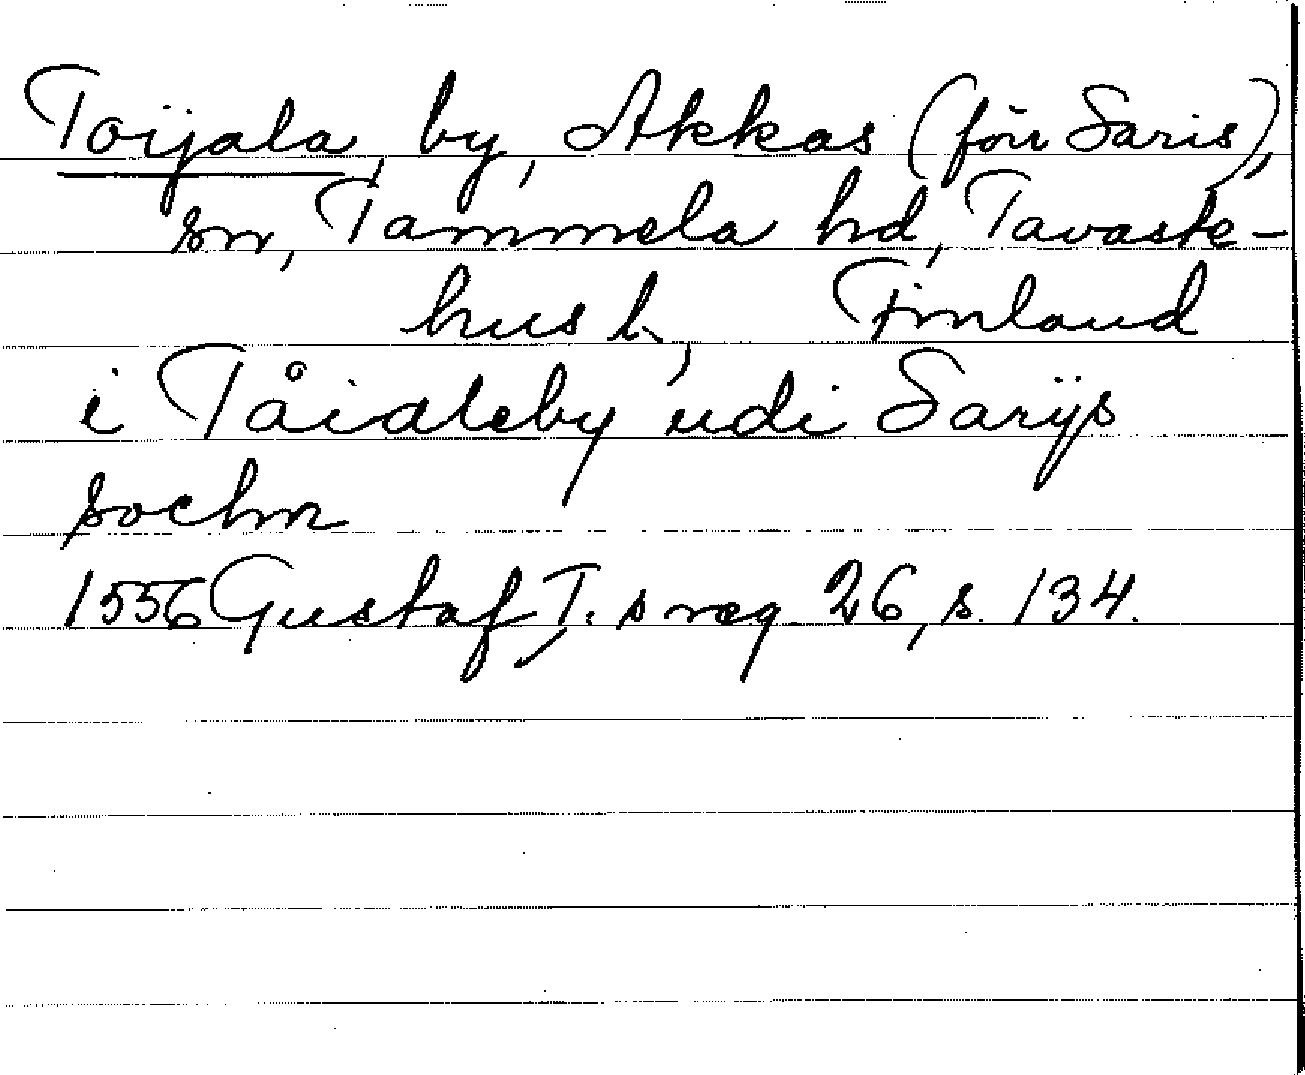 Toijala, by, Akkas (förr Saris),
sn, Tammela hd, Tavaste-
hus l., Finland
i Tåialeby udi Sarijs
sochn
1556 Gustaf I:s reg. 26, s. 134.